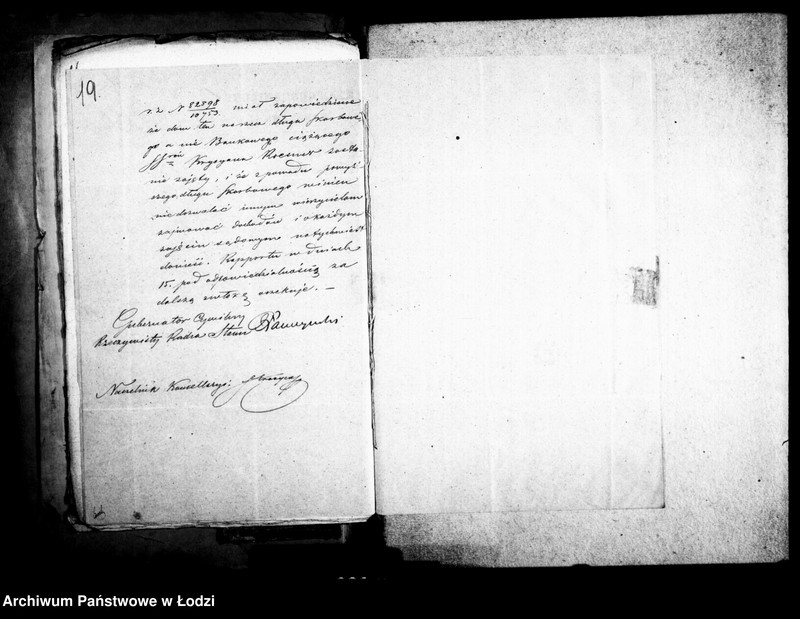 19.
r. z. N 82898/10453. miał zapowiedziane
że dom ten na rzecz długu Skarbowe-
go a nie Bankowego ciążącego
został
nie zajęty, i że z powodu powyż-
szego długu Skarbowego winien
niedozwalać innym wierzycielom
zajmować dochodów i o każdym
zajęciu sądowym natychmiast
donieść. Rapportu w dniach
15. pod odpowiedzialnością za
dalszą zwłokę oczekuje. —
Gubernator Cywilny
Rzeczywisty Radca Stanu
Naczelnik Kancellaryi:
Archiwum Państwowe w Łodzi